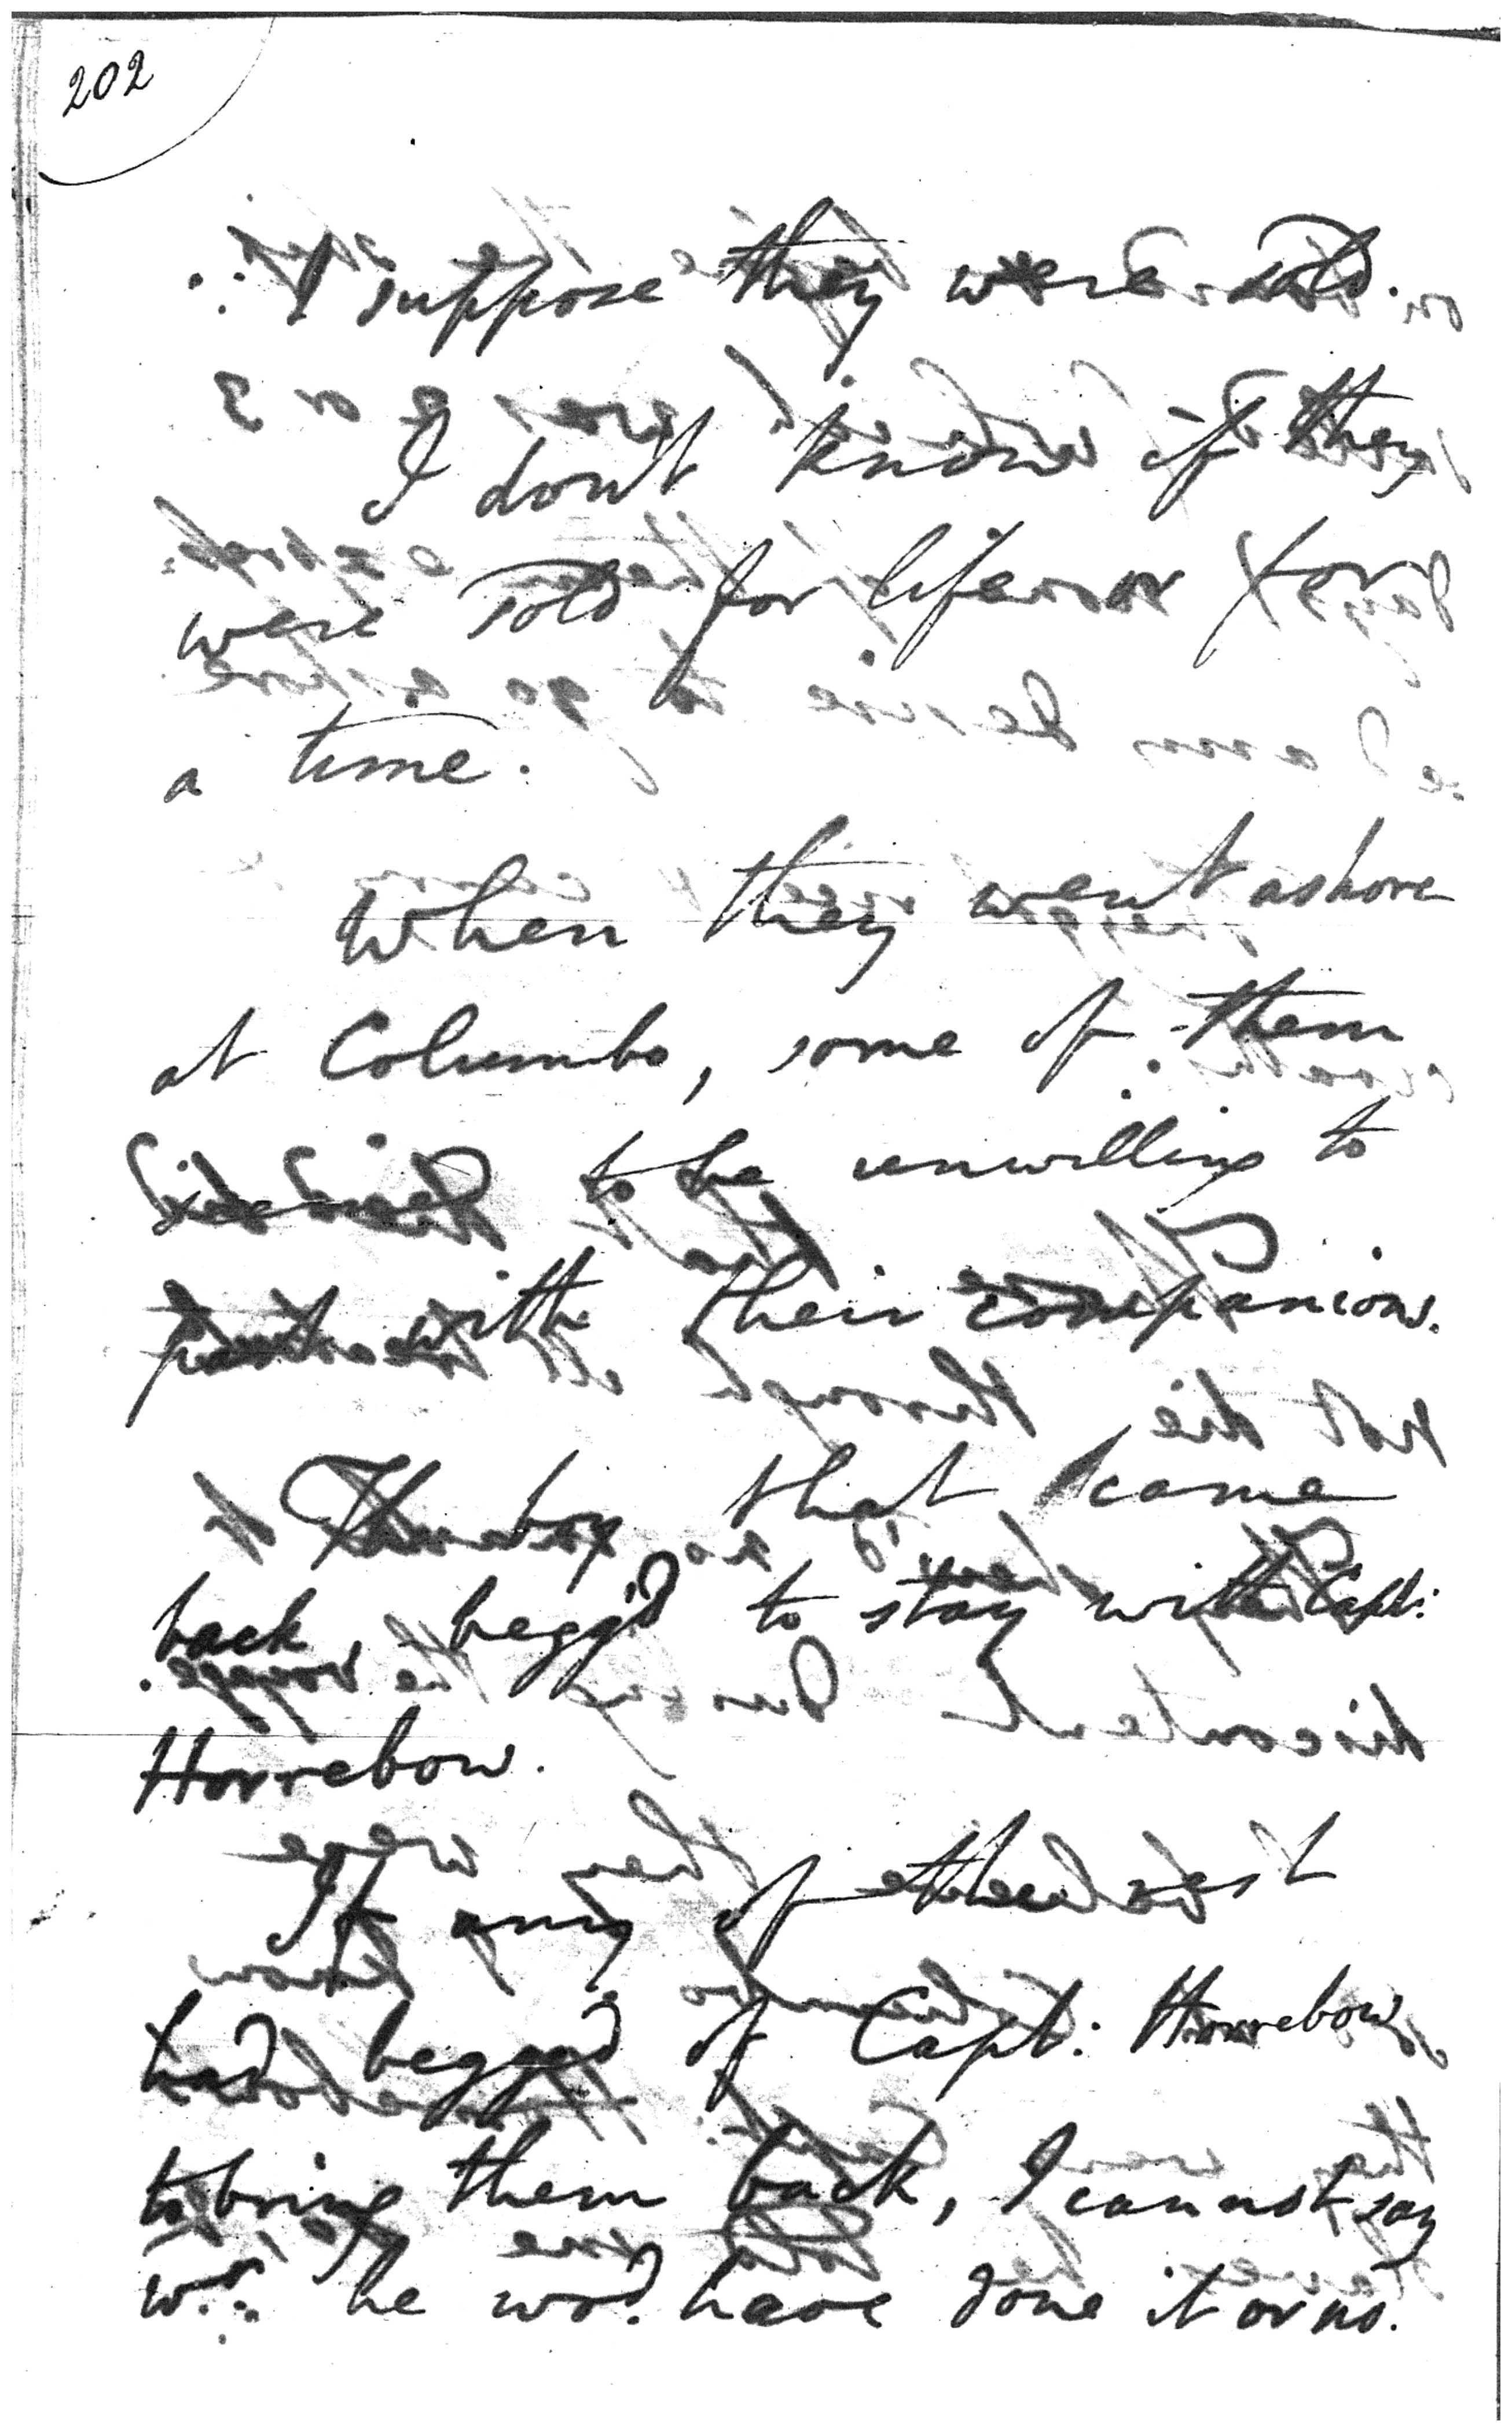 202
I suppose they were sold.
I don't know if they
were sold for life or for
a time.
When they went ashore
at Columbo, some of them
seemed to be unwilling to
part with their companions.
The boy that came
back, begg'd to stay with Capt:
Horrebow.
If any of the rest
had begged of Capt: Horrebow
to bring them back, I cannot say
wr. he wod. have done it or no.